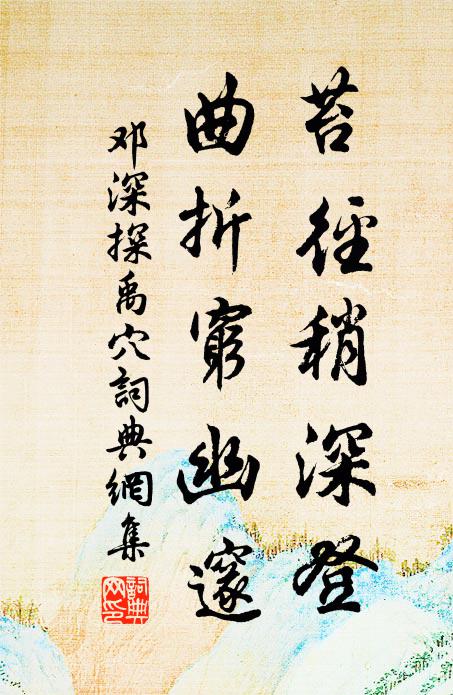 苔径稍深登
曲折窮幽邃
邓深探禹穴詞典網集